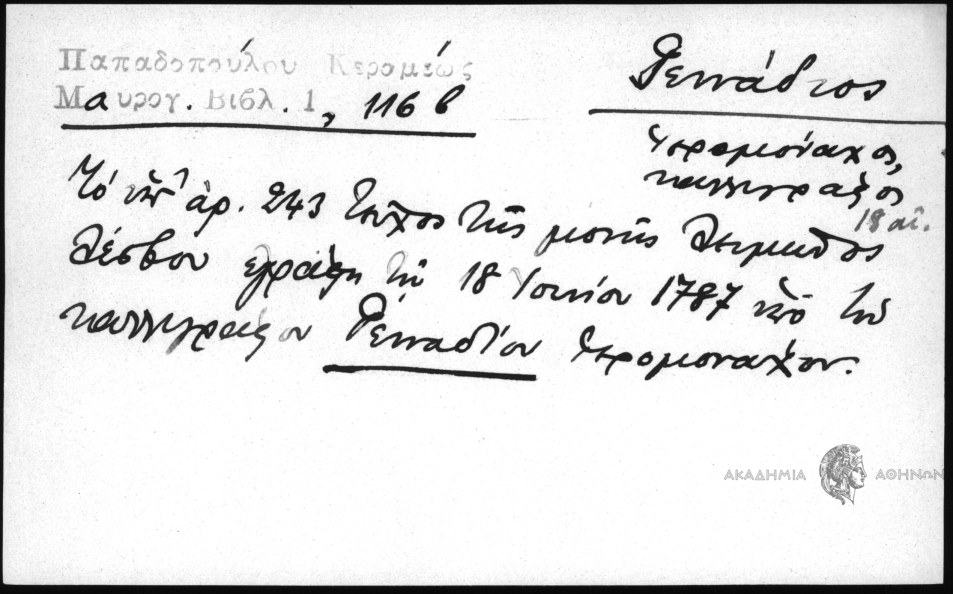 Παπαδοπούλου Κεραμέως
Μαυρογ. Βιβλ. 1, 116 β
Γεννάδιος
ἱερομόναχος,
καλλιγράφος
18 αἰ.
Τὸ ὑπ' ἀρ. 243 τεῦχος τῆς μονῆς Λειμῶνος
Λέσβου ἐγράφη τῇ 18 Ἰουνίου 1787 ὑπὸ τοῦ
καλλιγράφου Γενναδίου ἱερομονάχου.
ΑΚΑΔΗΜΙΑ ΑΘΗΝΩΝ